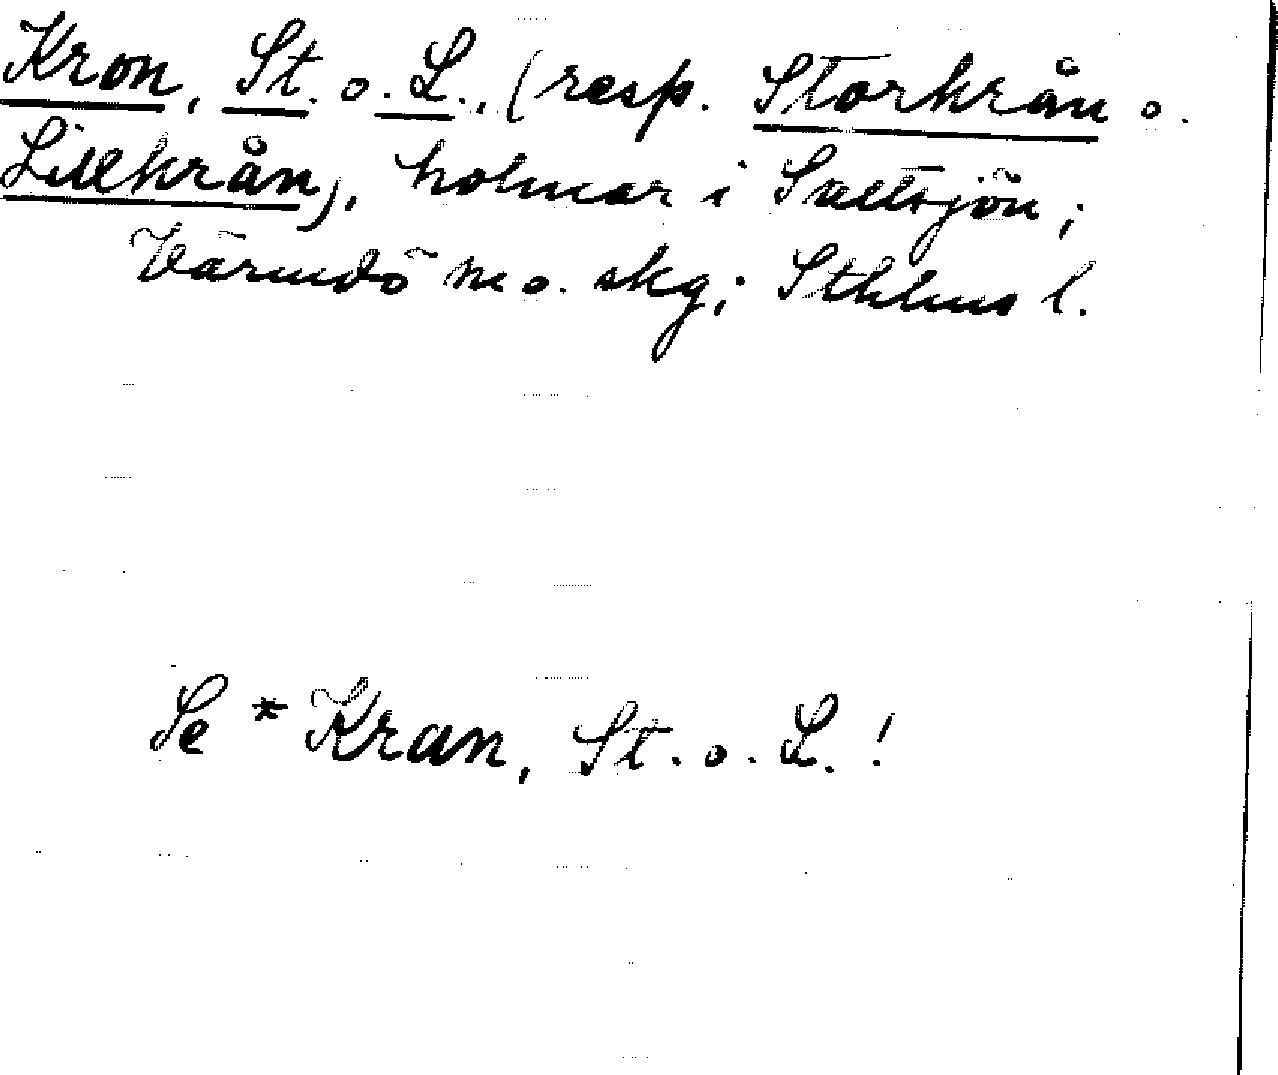 Kron, St. o. L., (resp. Storkrån o.
Lillkrån), holmar i Saltsjön;
Värmdö hd o. skg; Sthlms l.
Se * Kran, St. o. L.!